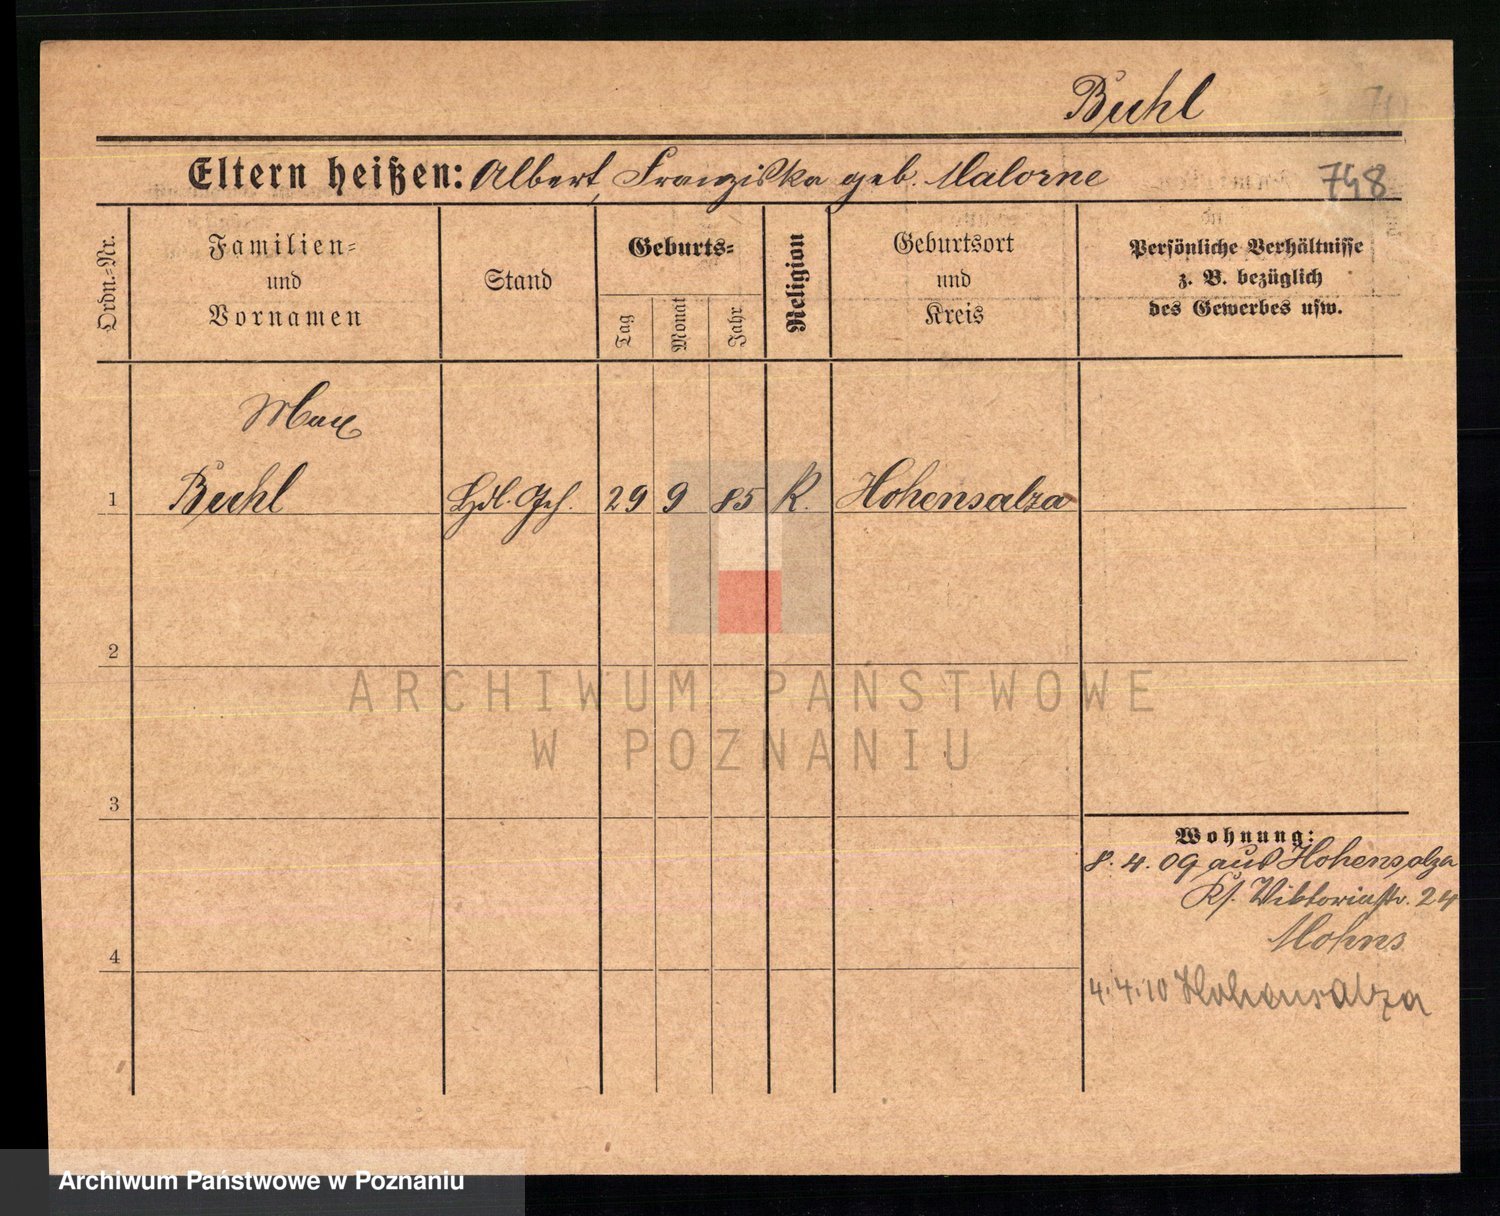 Buhl
Eltern heißen: Albert, Franziska geb. Malorne
748
Ordn.-Nr.
Familien-
und
Vornamen
Stand
Geburts-
Tag
Monat
Jahr
Religion
Geburtsort
und
Kreis
Persönliche Verhältnisse
z. B. bezüglich
des Gewerbes usw.
Max
1 Buhl Hdl. Geh. 29 9 85 K. Hohensalza
2
ARCHIWUM PAŃSTWOWE
W POZNANIU
3
Wohnung:
8. 4. 09 aus Hohensalza
Ks. Viktoriastr. 24
Mohns
4
4. 4. 10 Hohensalza
Archiwum Państwowe w Poznaniu